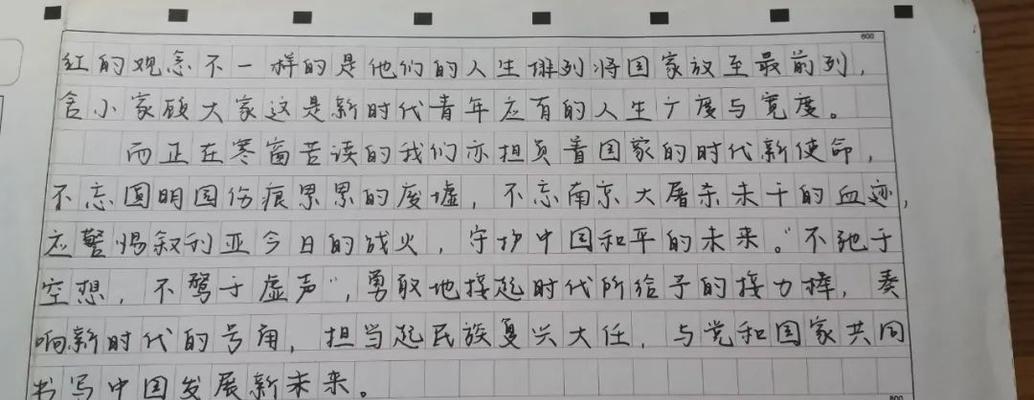 600
红的观念不一样的是他们的人生排列将国家放至最前列，
舍小家顾大家这是新时代青年应有的人生广度与宽度。
而正在寒窗苦读的我们亦担负着国家的时代新使命，
不忘圆明园伤痕累累的废墟，不忘南京大屠杀未干的血迹，
应警惕叙利亚今日的战火，守护中国和平的未来。“不驰于
空想，不骛于虚声”，勇敢地接起时代所给予的接力棒，奏
响新时代的号角，担当起民族复兴大任，与党和国家共同
书写中国发展新未来。
800